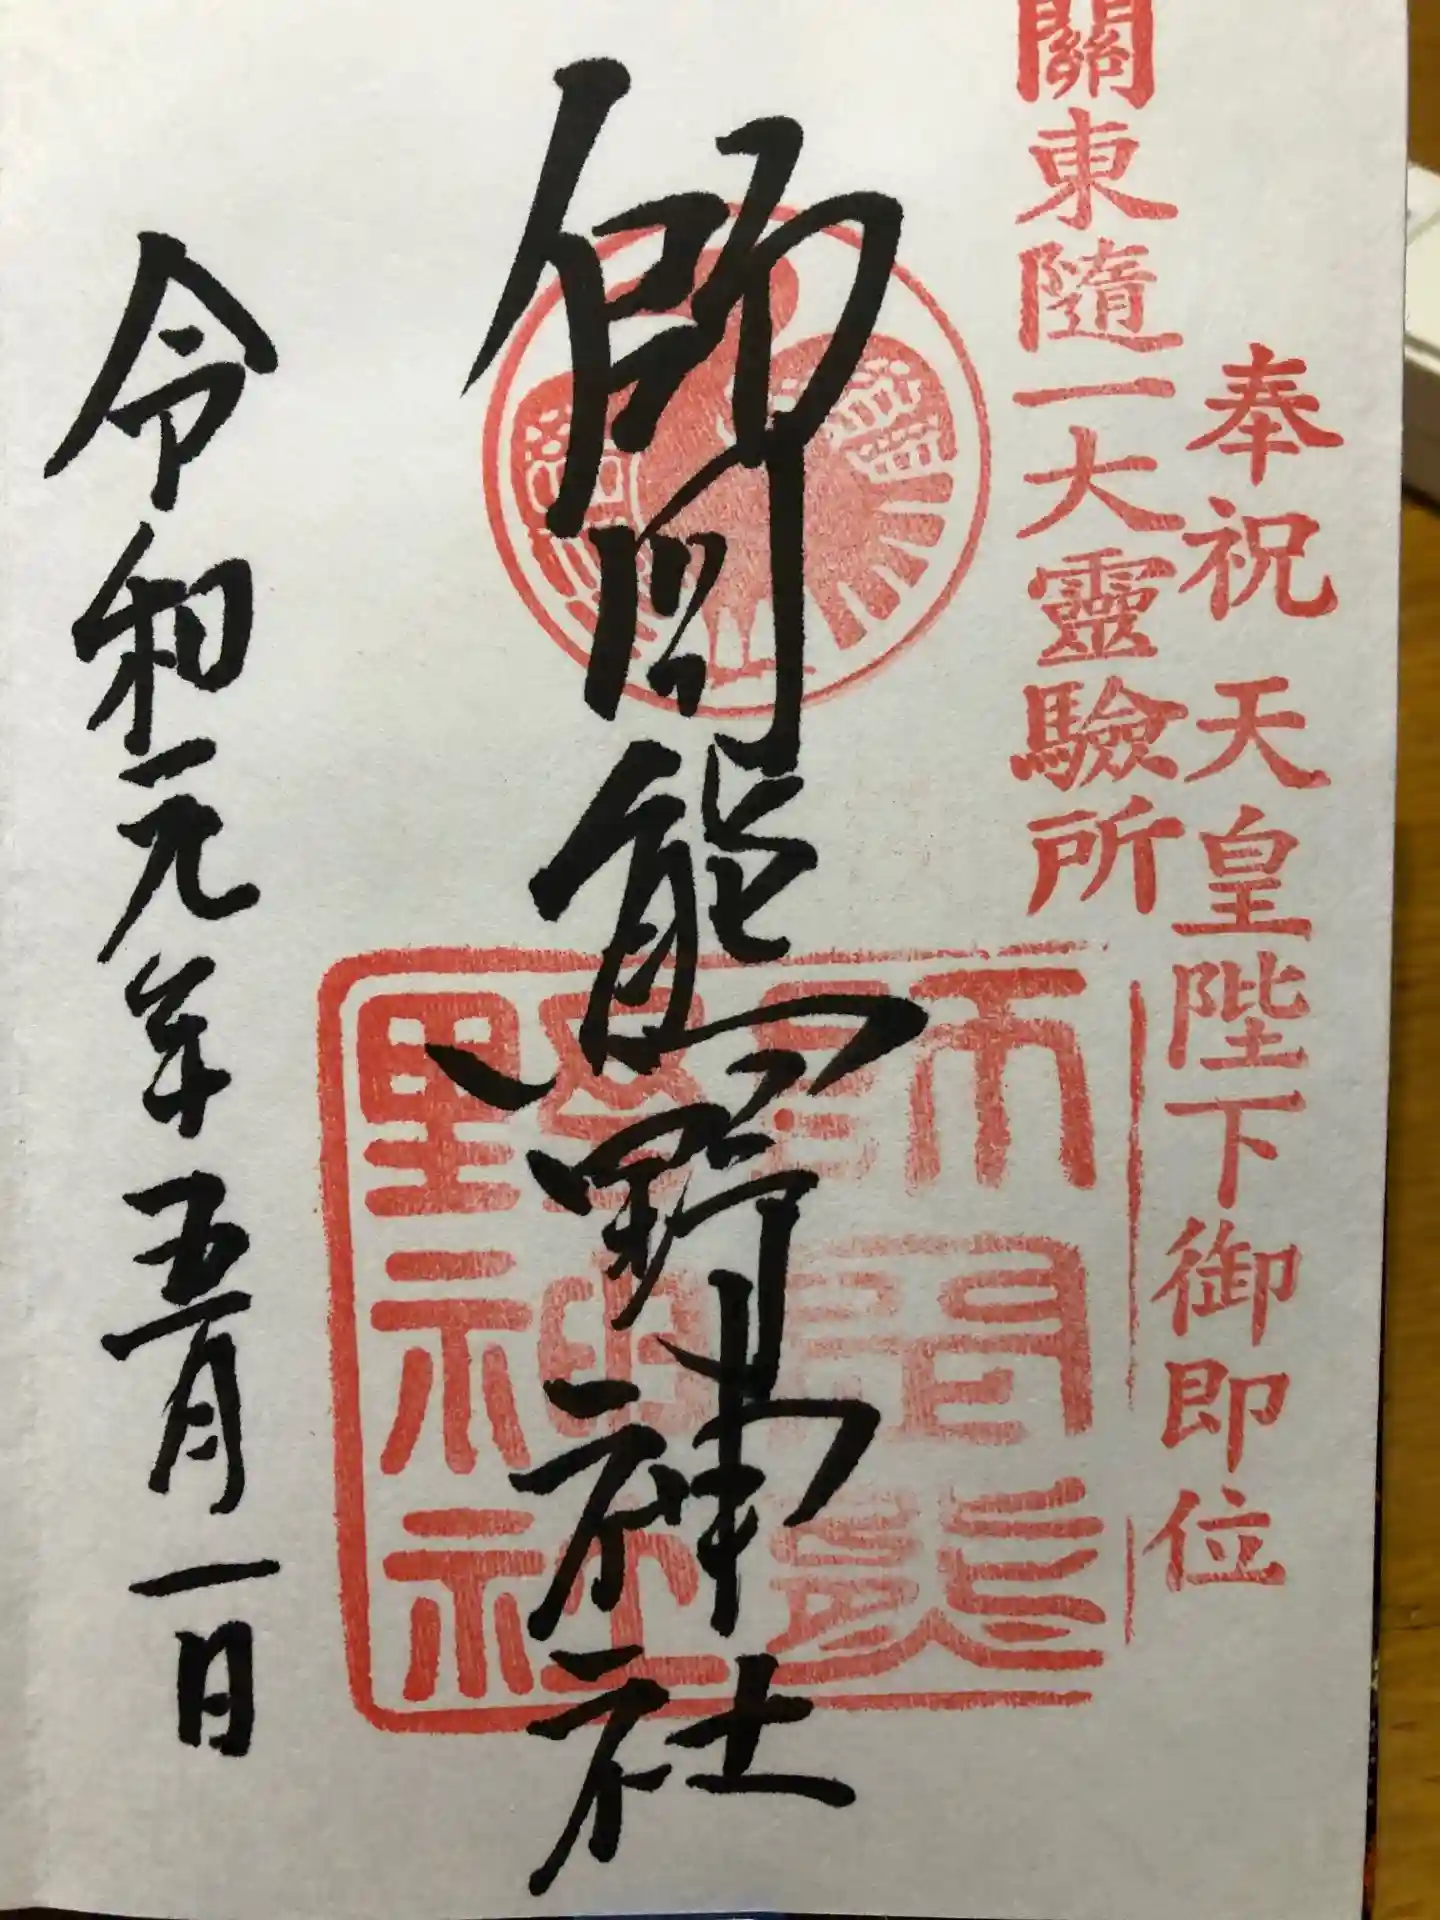 奉祝天皇陛下御即位
關東隨一大靈驗所
師岡熊野神社
師岡熊野神社
令和元年五月一日